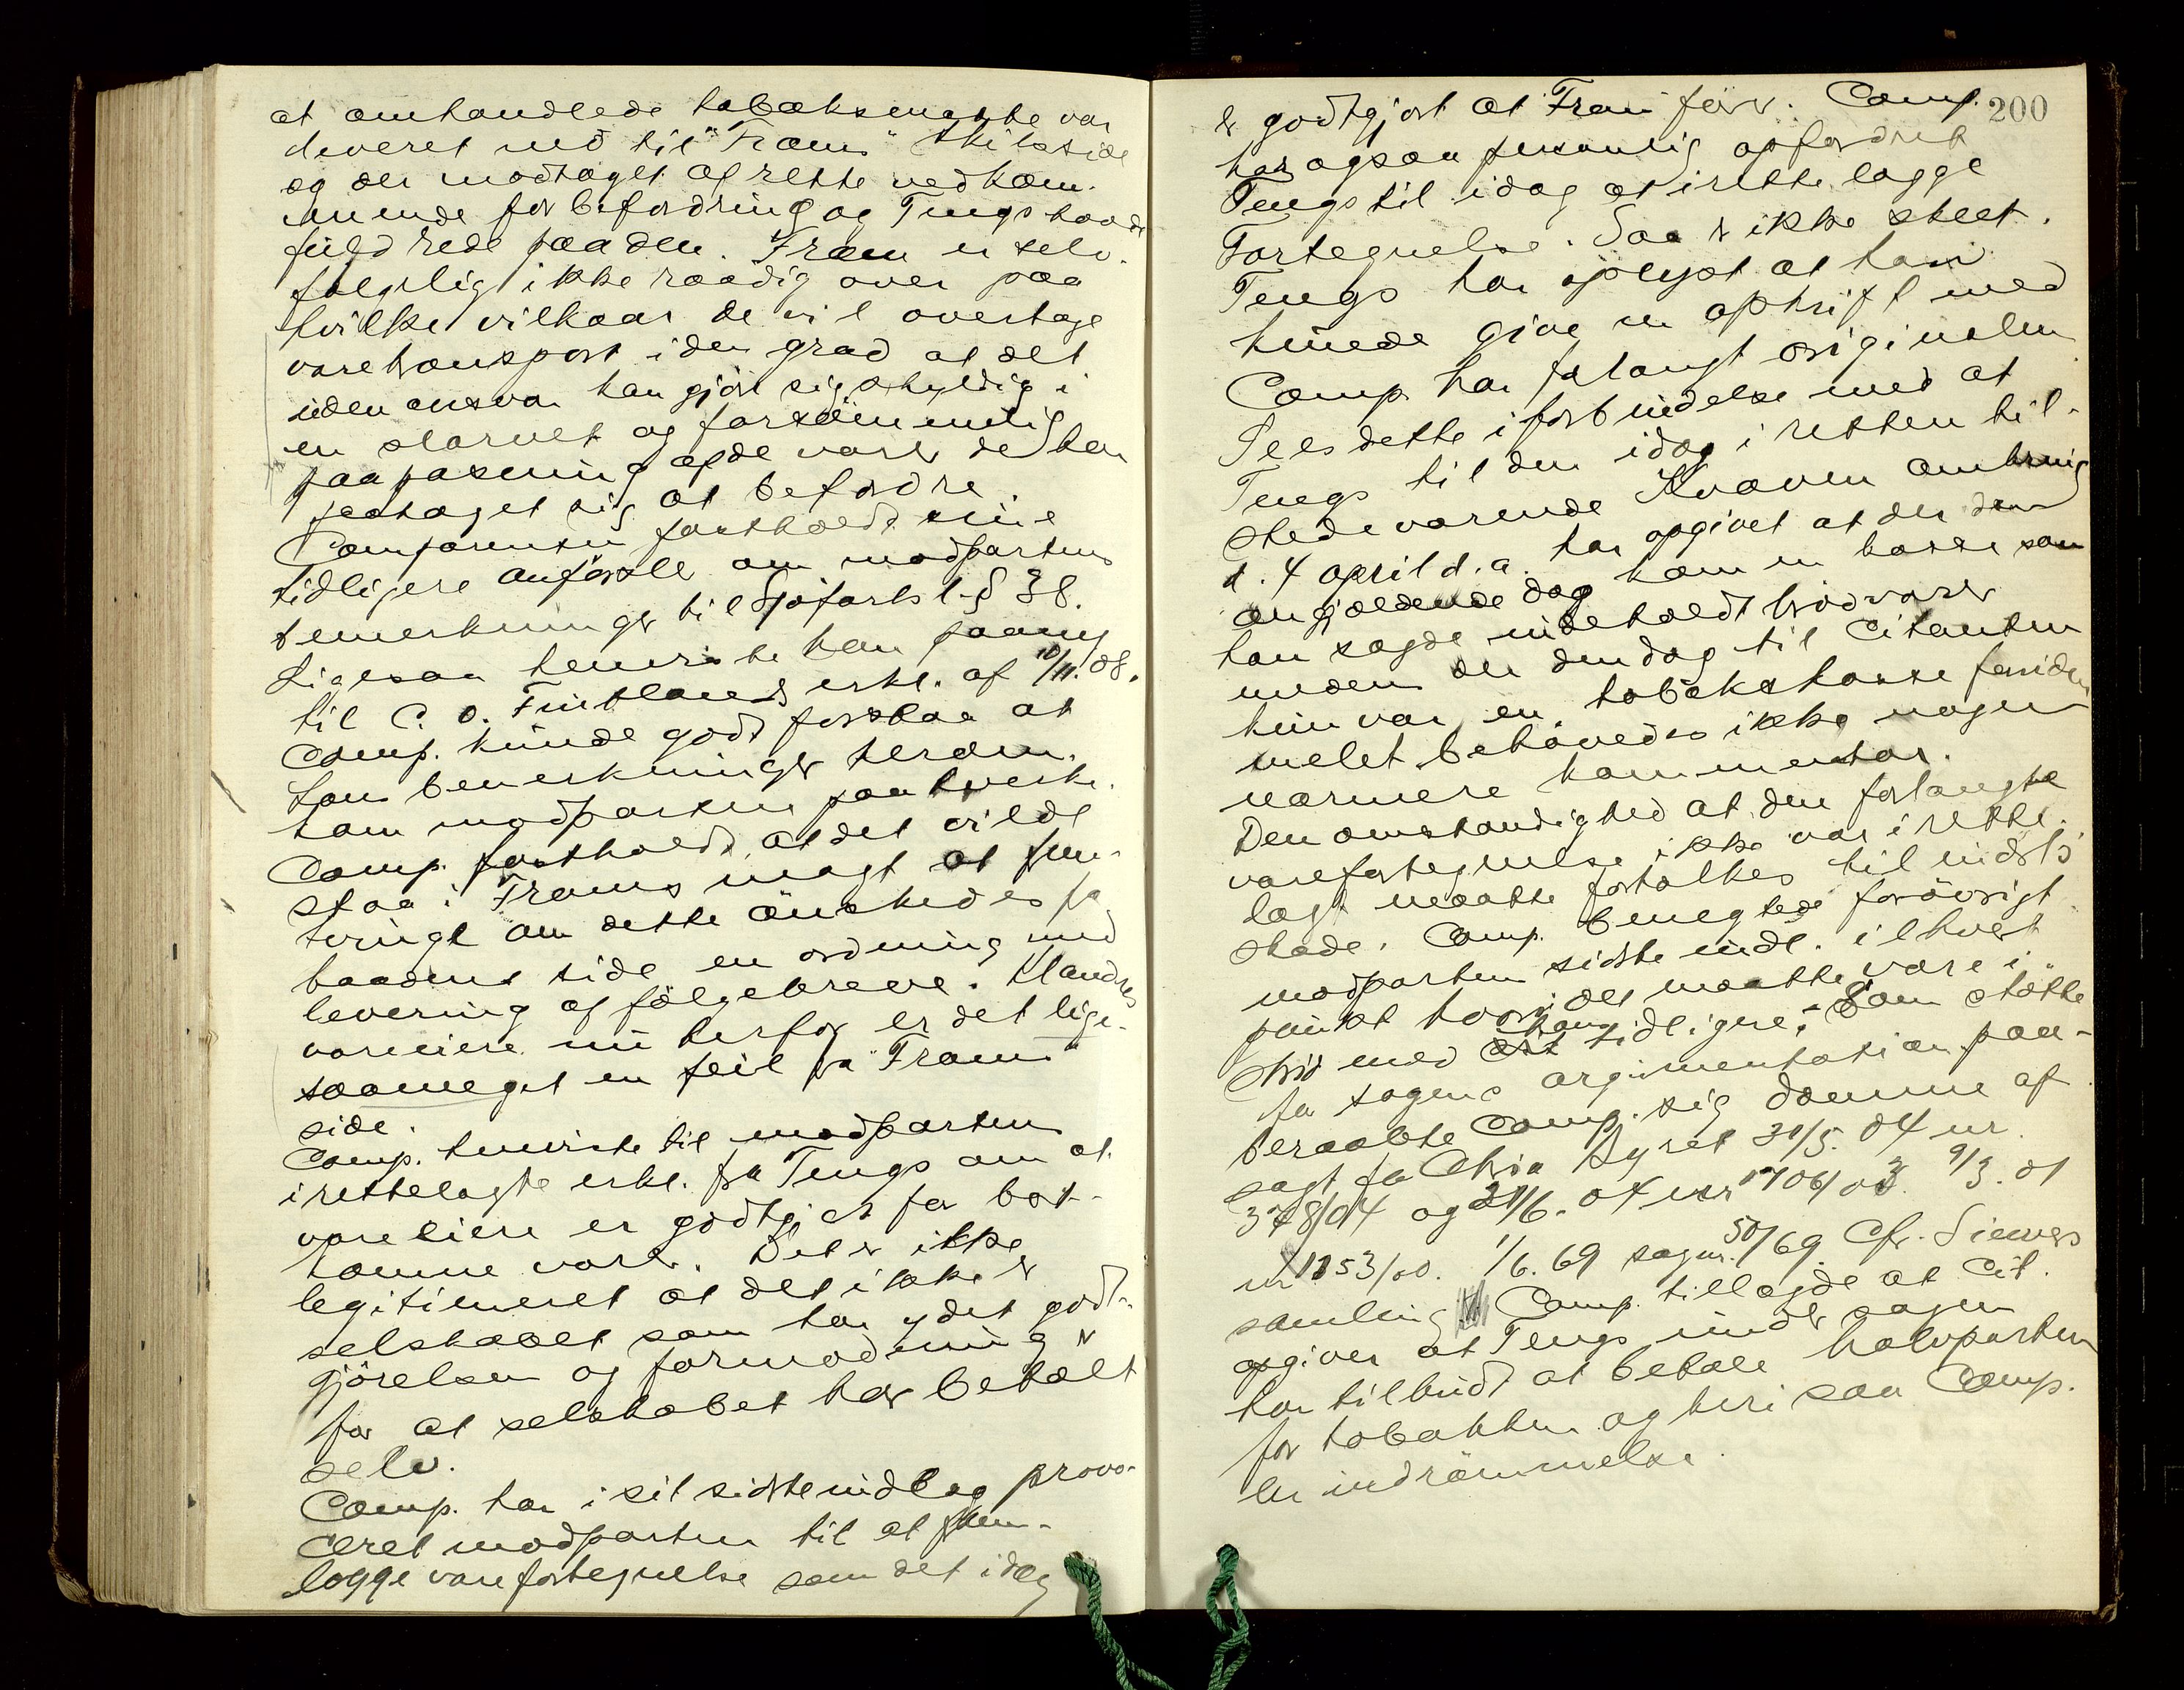 at omhandlede tobaksmatte var
leveret ned til "Fram" skibsside
og der modtaget af rette vedkom-
mende for befordring og Tengs havde
fuld rede paa den. Fram er selv-
følgelig ikke raadig over paa
hvilke vilkaar de vil overtage
varetransport i den grad at det
uden ansvar kan gjøre sig skyldig i
en slarvet og forsømmelig
paapasning af de varer de har
paataget sig at befordre.
Comparenten fastholdt sine
tidligere anførsler om modpartens
bemerkninger til Sjøfartsl. § 38.
Ligesaa henviste han paany
til C. O. Fintlands erkl. af 10/11. 08.
Comp. kunde godt forstaa at
hans bemerkninger herom.
ham modparten paatverke.
Comp. fastholdt, at det vilde
staa i Frams magt at frem-
tvinge om dette ønskedes fra
baadens side en ordning med
levering af følgebreve. Klandres
vareeiere nu herfor er det lige-
saameget en feil fra "Fram"
side.
Comp. henviste til modparten
irettelagte erkl. fra Tengs om at
vareeiere er godtgjort for bort-
komne varer. Det er ikke
legitimeret at det ikke er
selskabet som har ydet godt-
gjørelsen og formodning er
for at selskabet har betalt
selv.
Comp. har i sit sidste indlæg provo-
ceret modparten til at frem-
lægge varefortegnelse som det idag
200
er godtgjort at Fram fører. Comp.
har ogsaa personlig opfordret
Tengs til idag at irettelægge
Fortegnelse. Saa er ikke skeet.
Tengs har oplyst at han
kunde give en afskrift med
Comp. har forlangt originalen.
Sees dette i forbindelse med at
Tengs til den idag i retten til-
stedeværende Kvaven omkring
d. 4 april d. a. har opgivet at der den
angjældende dag kom en kasse som
han sagde indeholdt brødvarer
medens der den dag til Citanten
kun var en tobakskasse
melet behøvedes ikke nogen
nærmere kommentar.
Den omstændighed at den forlangte
varefortegnelse ikke var irette-
lagt maatte fortolkes til nidst's
skade. Comp. benegtede forøvrigt
modparten sidste indl. i ethvert
punkt hvori det maatte være i
strid med hans tidligere. Som støtte
for sagens argumentation paa-
beraabte Comp. sig domme af
sagt fra Chria Byret 31/5. 04 nr.
378/04 og 21/6. 04 nr 1706/03 9/3. 01
nr 1153/00. 1/6. 69 sagnr. 50/69. Cfr. Siewers
samling Comp. tillagde at Cit.
opgiver at Tengs under sagen
har tilbudt at betale halvparten
for tobakken og heri saa Comp.
en indrømmelse.